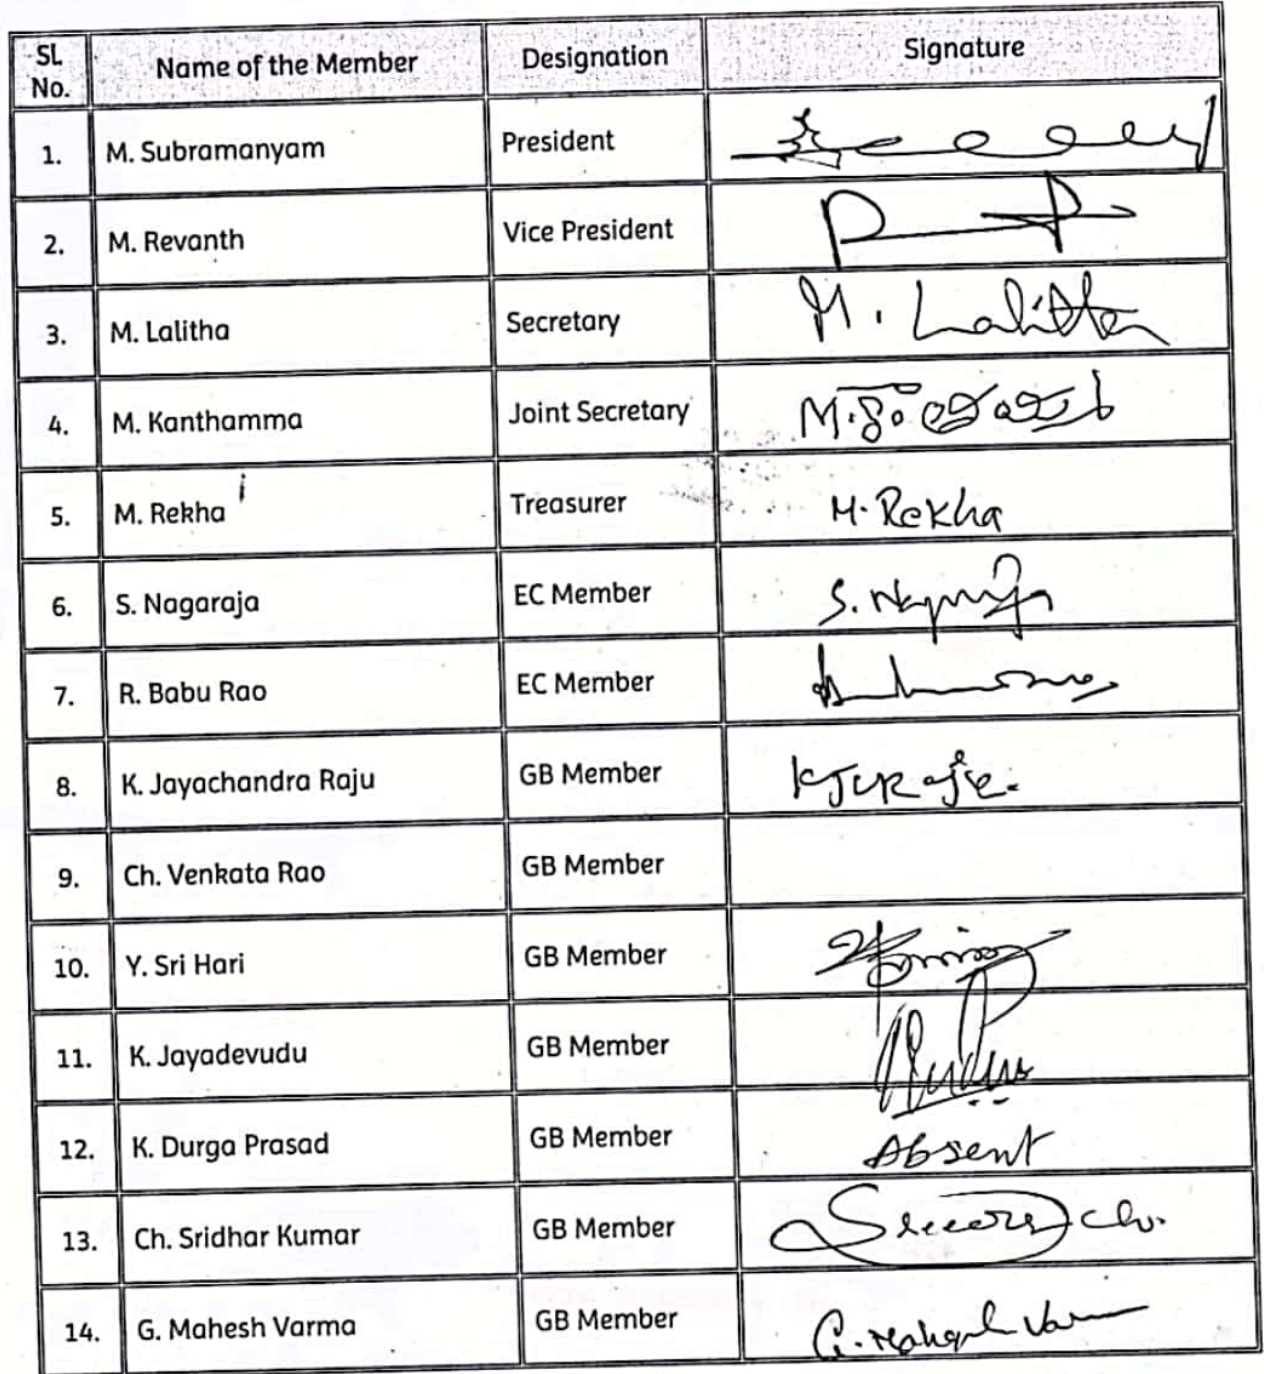 SL No. Name of the Member Designation Signature
1. M. Subramanyam President
2. M. Revanth Vice President
3. M. Lalitha Secretary M. Lalitha
4. M. Kanthamma Joint Secretary
5. M. Rekha Treasurer M. Rekha
6. S. Nagaraja EC Member S. Nagaraja
7. R. Babu Rao EC Member
8. K. Jayachandra Raju GB Member KJCRaju
9. Ch. Venkata Rao GB Member
10. Y. Sri Hari GB Member
11. K. Jayadevudu GB Member
12. K. Durga Prasad GB Member Absent
13. Ch. Sridhar Kumar GB Member
14. G. Mahesh Varma GB Member G. Mahesh Varma